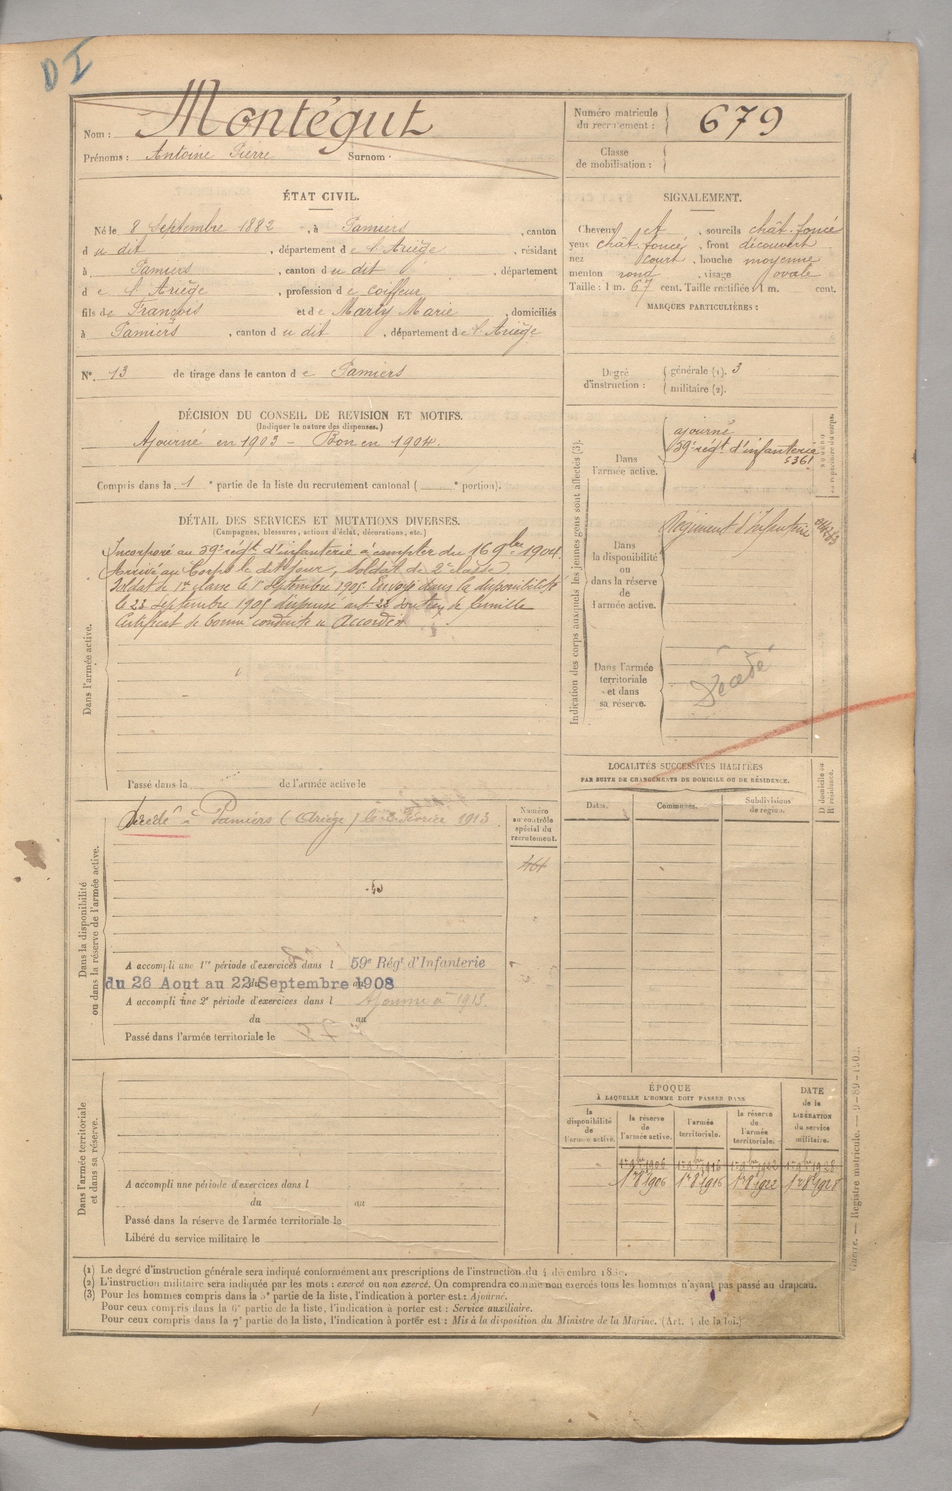 DI
Nom : Montégut
Prénoms : Antoine Pierre Surnom :
Numéro matricule du recrutement : 679
Classe de mobilisation :
ÉTAT CIVIL.
Né le 8 Septembre 1882, à Pamiers, canton
du dit, département de l'Ariège, résidant
à Pamiers, canton du dit, département
de l'Ariège, profession de coiffeur
fils de François et de Marly Marie, domiciliés
à Pamiers, canton du dit, département de l'Ariège
N° 13 de tirage dans le canton de Pamiers
SIGNALEMENT.
Cheveux et, sourcils chât. foncé
yeux chât. foncé, front découvert
nez court, bouche moyenne
menton rond, visage ovale
Taille : 1 m. 67 cent. Taille rectifiée 1 m. cent.
MARQUES PARTICULIÈRES :
Degré d'instruction : générale (1). 3
militaire (2).
DÉCISION DU CONSEIL DE REVISION ET MOTIFS.
(Indiquer la nature des dispenses.)
Ajourné en 1903 - Bon en 1904.
Compris dans la 1e partie de la liste du recrutement cantonal ( e portion).
DÉTAIL DES SERVICES ET MUTATIONS DIVERSES.
(Campagnes, blessures, actions d'éclat, décorations, etc.)
Dans l'armée active.
Incorporé au 59e régt d'infanterie à compter du 16 9bre 1904.
Arrivé au Corps le dit jour, Soldat de 2e classe.
Soldat de 1re classe le 1er Septembre 1905. Envoyé dans la disponibilité
le 23 septembre 1905 dispensé art 22 soutien de famille
Certificat de bonne conduite accordé
Passé dans la de l'armée active le
Indication des corps auxquels les jeunes gens sont affectés (3).
Dans l'armée active.
ajourné
59e régt d'infanterie
5361
Dans la disponibilité ou dans la réserve de l'armée active.
Régiment d'Infanterie
Dans l'armée territoriale et dans sa réserve.
Décédé
LOCALITÉS SUCCESSIVES HABITÉES
PAR SUITE DE CHANGEMENTS DE DOMICILE OU DE RÉSIDENCE.
Dates. Communes. Subdivisions de région. D domicile ou R résidence.
Dans la disponibilité ou dans la réserve de l'armée active.
Décédé à Pamiers (Ariège) le Février 1913
Numéro au contrôle spécial du recrutement.
464
A accompli une 1re période d'exercices dans l 59e Régt d'Infanterie
du 26 Aout au 22 Septembre 1908
A accompli une 2e période d'exercices dans l Ajourné à 1913.
du au
Passé dans l'armée territoriale le
Dans l'armée territoriale et dans sa réserve.
A accompli une période d'exercices dans l
du au
Passé dans la réserve de l'armée territoriale le
Libéré du service militaire le
ÉPOQUE
À LAQUELLE L'HOMME DOIT PASSER DANS
la disponibilité de l'armée active. la réserve de l'armée active. l'armée territoriale. la réserve de l'armée territoriale.
DATE de la LIBÉRATION du service militaire.
1er 8bre 1906 1er 8bre 1916 1er 8bre 1922 1er 8bre 1928
(1) Le degré d'instruction générale sera indiqué conformément aux prescriptions de l'instruction du 4 décembre 18
(2) L'instruction militaire sera indiquée par les mots : exercé ou non exercé. On comprendra comme non exercés tous les hommes n'ayant pas passé au drapeau.
(3) Pour les hommes compris dans la 5e partie de la liste, l'indication à porter est : Ajourné.
Pour ceux compris dans la 6e partie de la liste, l'indication à porter est : Service auxiliaire.
Pour ceux compris dans la 7e partie de la liste, l'indication à porter est : Mis à la disposition du Ministre de la Marine. (Art. 4 de la loi.)
Registre matricule.